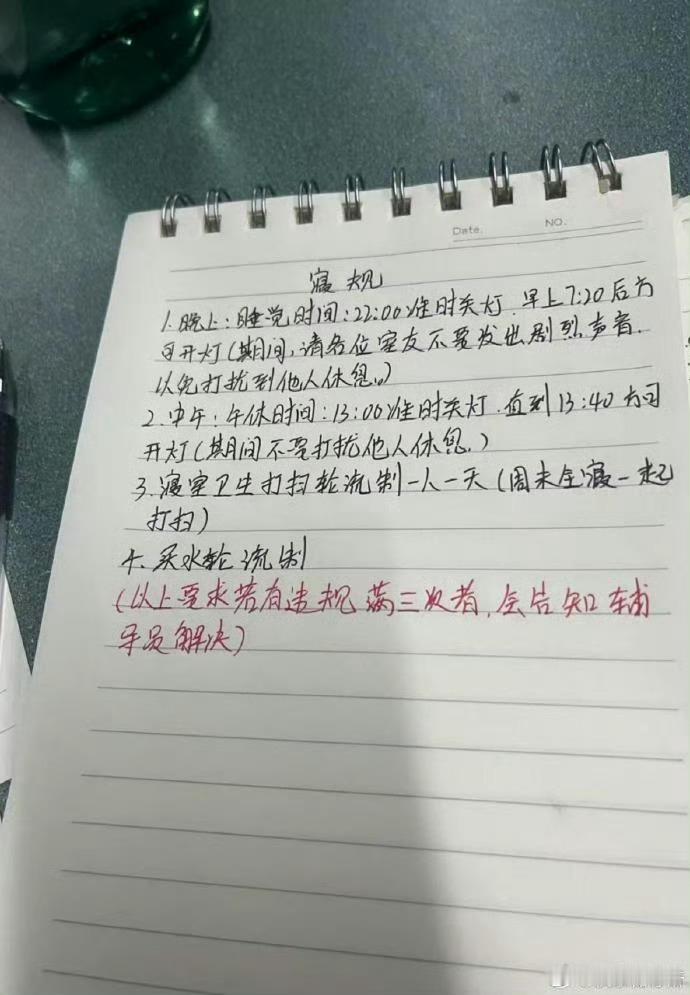 Date.
NO.
寝规
1.晚上:睡觉时间:22:00准时关灯.早上7:20后方
可开灯(期间,请各位室友不要发出剧烈声音.
以免打扰到他人休息。)
2.中午:午休时间:13:00准时关灯.直到13:40方可
开灯(期间不要打扰他人休息.)
3.寝室卫生打扫轮流制一人一天(周末全寝一起
打扫)
4.买水轮流制
(以上要求若有违规满三次者,会告知辅
导员解决)